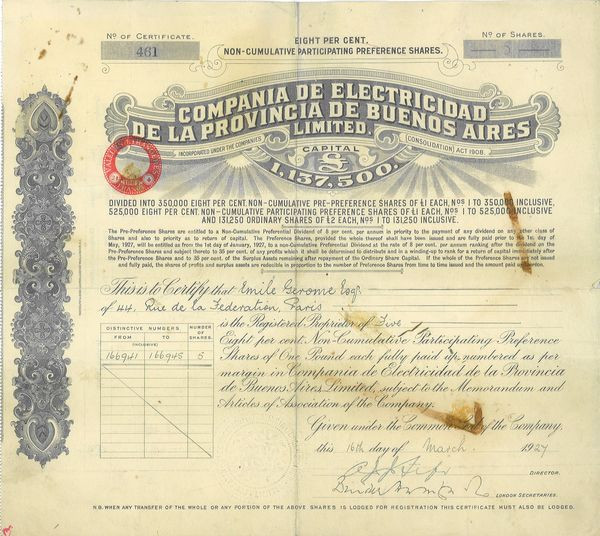 No OF CERTIFICATE.
461
EIGHT PER CENT.
NON-CUMULATIVE PARTICIPATING PREFERENCE SHARES.
No OF SHARES.
5
COMPANIA DE ELECTRICIDAD
DE LA PROVINCIA DE BUENOS AIRES
LIMITED.
INCORPORATED UNDER THE COMPANIES (CONSOLIDATION) ACT 1908.
CAPITAL
£
1,137,500.
DIVIDED INTO 350,000 EIGHT PER CENT. NON-CUMULATIVE PRE-PREFERENCE SHARES OF £1 EACH, Nos 1 TO 350,000 INCLUSIVE,
525,000 EIGHT PER CENT. NON-CUMULATIVE PARTICIPATING PREFERENCE SHARES OF £1 EACH, Nos 1 TO 525,000 INCLUSIVE
AND 131,250 ORDINARY SHARES OF £2 EACH, Nos 1 TO 131,250 INCLUSIVE.
The Pre-Preference Shares are entitled to a Non-Cumulative Preferential Dividend of 8 per cent. per annum in priority to the payment of any dividend on any other class of
Shares and also to priority as to return of capital. The Preference Shares, provided the whole thereof shall have been issued and are fully paid prior to the 1st day of
May, 1927, will be entitled as from the 1st day of January, 1927, to a non-cumulative Preferential Dividend at the rate of 8 per cent. per annum ranking after the dividend on the
Pre-Preference Shares and subject thereto to 35 per cent. of any profits which it shall be determined to distribute and in a winding-up to rank for a return of capital immediately after
the Pre-Preference Shares and to 35 per cent. of the Surplus Assets remaining after repayment of the Ordinary Share Capital. If the whole of the Preference Shares are not
issued and fully paid, the shares of profits and surplus assets are reducible in proportion to the number of Preference Shares from time to time issued and the amount paid up thereon.
This is to Certify that Emile Gerome Esqr.
of 44, Rue de la Federation, Paris
is the Registered Proprietor of Five
Eight per cent Non-Cumulative Participating Preference
Shares of One Pound each fully paid up, numbered as per
margin in Compania de Electricidad de la Provincia
de Buenos Aires Limited, subject to the Memorandum and
Articles of Association of the Company.
DISTINCTIVE NUMBERS. NUMBER OF SHARES.
FROM TO
(INCLUSIVE)
166941 166945 5
Given under the Common Seal of the Company,
this 16th day of March 1927
DIRECTOR.
LONDON SECRETARIES.
N.B. WHEN ANY TRANSFER OF THE WHOLE OR ANY PORTION OF THE ABOVE SHARES IS LODGED FOR REGISTRATION THIS CERTIFICATE MUST ALSO BE LODGED.